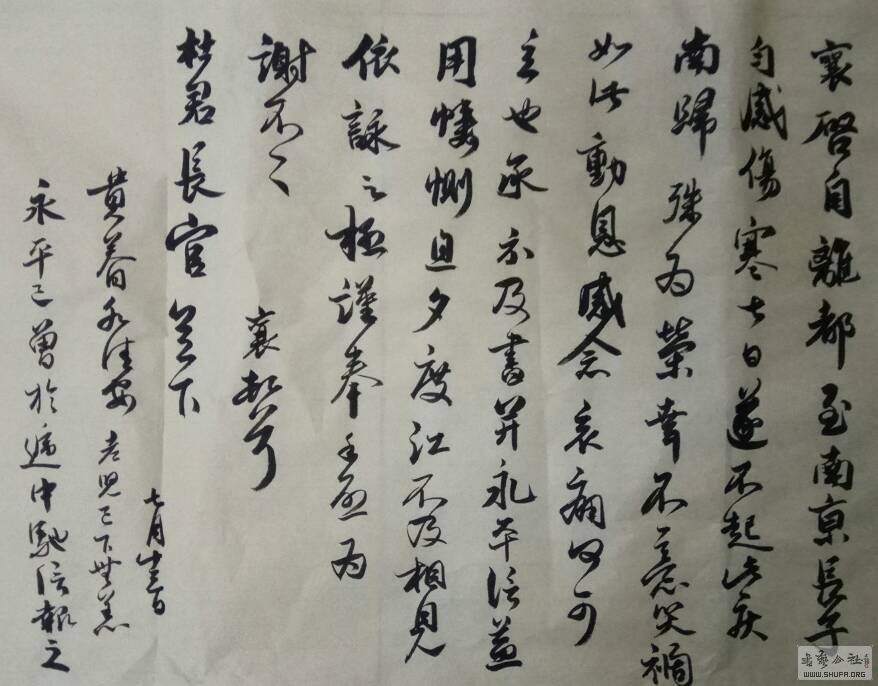 襄啓自離都至南京長子
勻感傷寒七日遂不起此疾
南歸殊為榮幸不意災禍
如此動息感念哀痛何可
言也承示及書并永平信益
用悽惻旦夕度江不及相見
依詠之極謹奉手啓為
謝不一一 襄頓首
杜君長官足下
七月十三日
貴眷各佳安 老兒已下無恙
永平已曾於遞中馳信報之
书艺公社
WWW.SHUFA.ORG